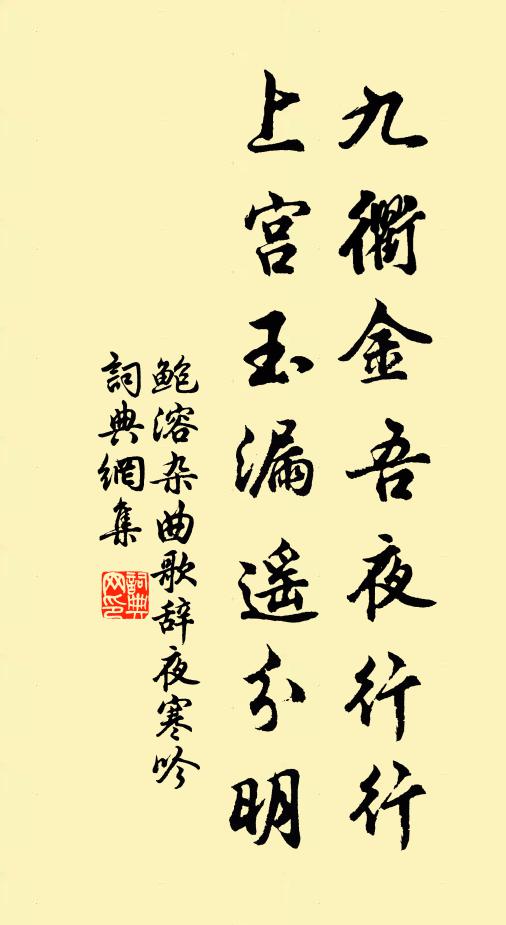 九衢金吾夜行行
上宫玉漏遥分明
鲍溶杂曲歌辞夜寒吟
詞典網集
詞典网印